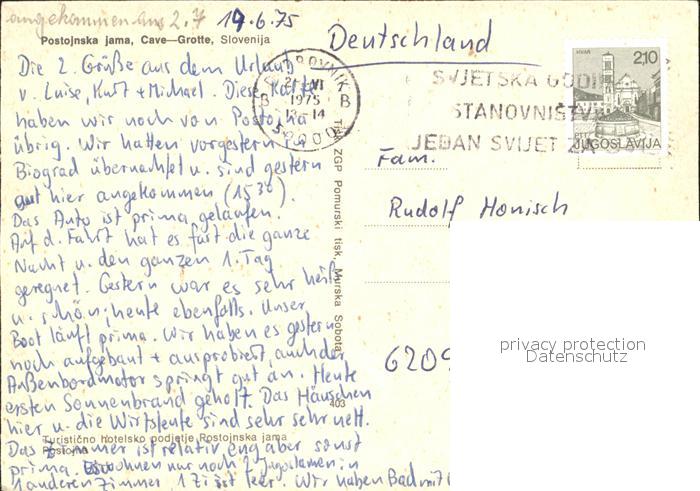 angekommen am 2.7 19.6.75
Postojnska jama, Cave—Grotte, Slovenija
Deutschland
Die 2. Grüße aus dem Urlaub
v. Luise, Kurt + Michael. Diese Karte
haben wir noch von Postojna
übrig. Wir hatten vorgestern in
Biograd übernachtet u. sind gestern
gut hier angekommen (15³⁰).
Das Auto ist prima gelaufen.
Auf d. Fahrt hat es fast die ganze
Nacht u. den ganzen 1. Tag
geregnet. Gestern war es sehr heiß
u. schön, heute ebenfalls. Unser
Boot läuft prima. Wir haben es gestern
noch aufgebaut + ausprobiert, auch der
Außenbordmotor springt gut an. Heute
ersten Sonnenbrand geholt. Das Häuschen
hier u. die Wirtsleute sind sehr sehr nett.
Das Zimmer ist relativ eng aber sonst
prima. Es wohnen nur noch 2 Jugoslawen in
1 anderen Zimmer 1 Zi ist leer. Wir haben Bad mit
Turistično hotelsko podjetje Postojnska jama
Postojna
403
Tisk ZGP Pomurski tisk, Murska Sobota
DUBROVNIK
VI
1975
14
B B
50000
SVJETSKA GODINA
STANOVNIŠTVA
JEDAN SVIJET ZA
HVAR
2,10
JUGOSLAVIJA
Fam.
Rudolf Honisch
6209
privacy protection
Datenschutz